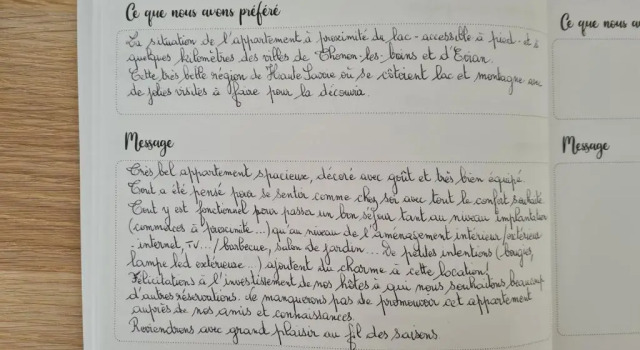 Ce que nous avons préféré
La situation de l'appartement à proximité du lac - accessible à pied - et à
quelques kilomètres des villes de Thonon-les-bains et d'Evian.
Cette très belle région de Haute Savoie où se côtoient lac et montagne avec
de jolies visites à faire pour la découvrir.
Message
Très bel appartement spacieux, décoré avec goût et très bien équipé.
Tout a été pensé pour se sentir comme chez soi avec tout le confort souhaité
Tout y est fonctionnel pour passer un bon séjour tant au niveau implantation
(commerces à proximité...) qu'au niveau de l'aménagement intérieur/extérieur
: internet, TV.../barbecue, salon de jardin... De petites intentions (bougies,
lampe led extérieure...) ajoutent du charme à cette location!
Félicitations à l'investissement de nos hôtes à qui nous souhaitons beaucoup
d'autres réservations. Ne manquerons pas de promouvoir cet appartement
auprès de nos amis et connaissances.
Reviendrons avec grand plaisir au fil des saisons
Ce que nous
Message